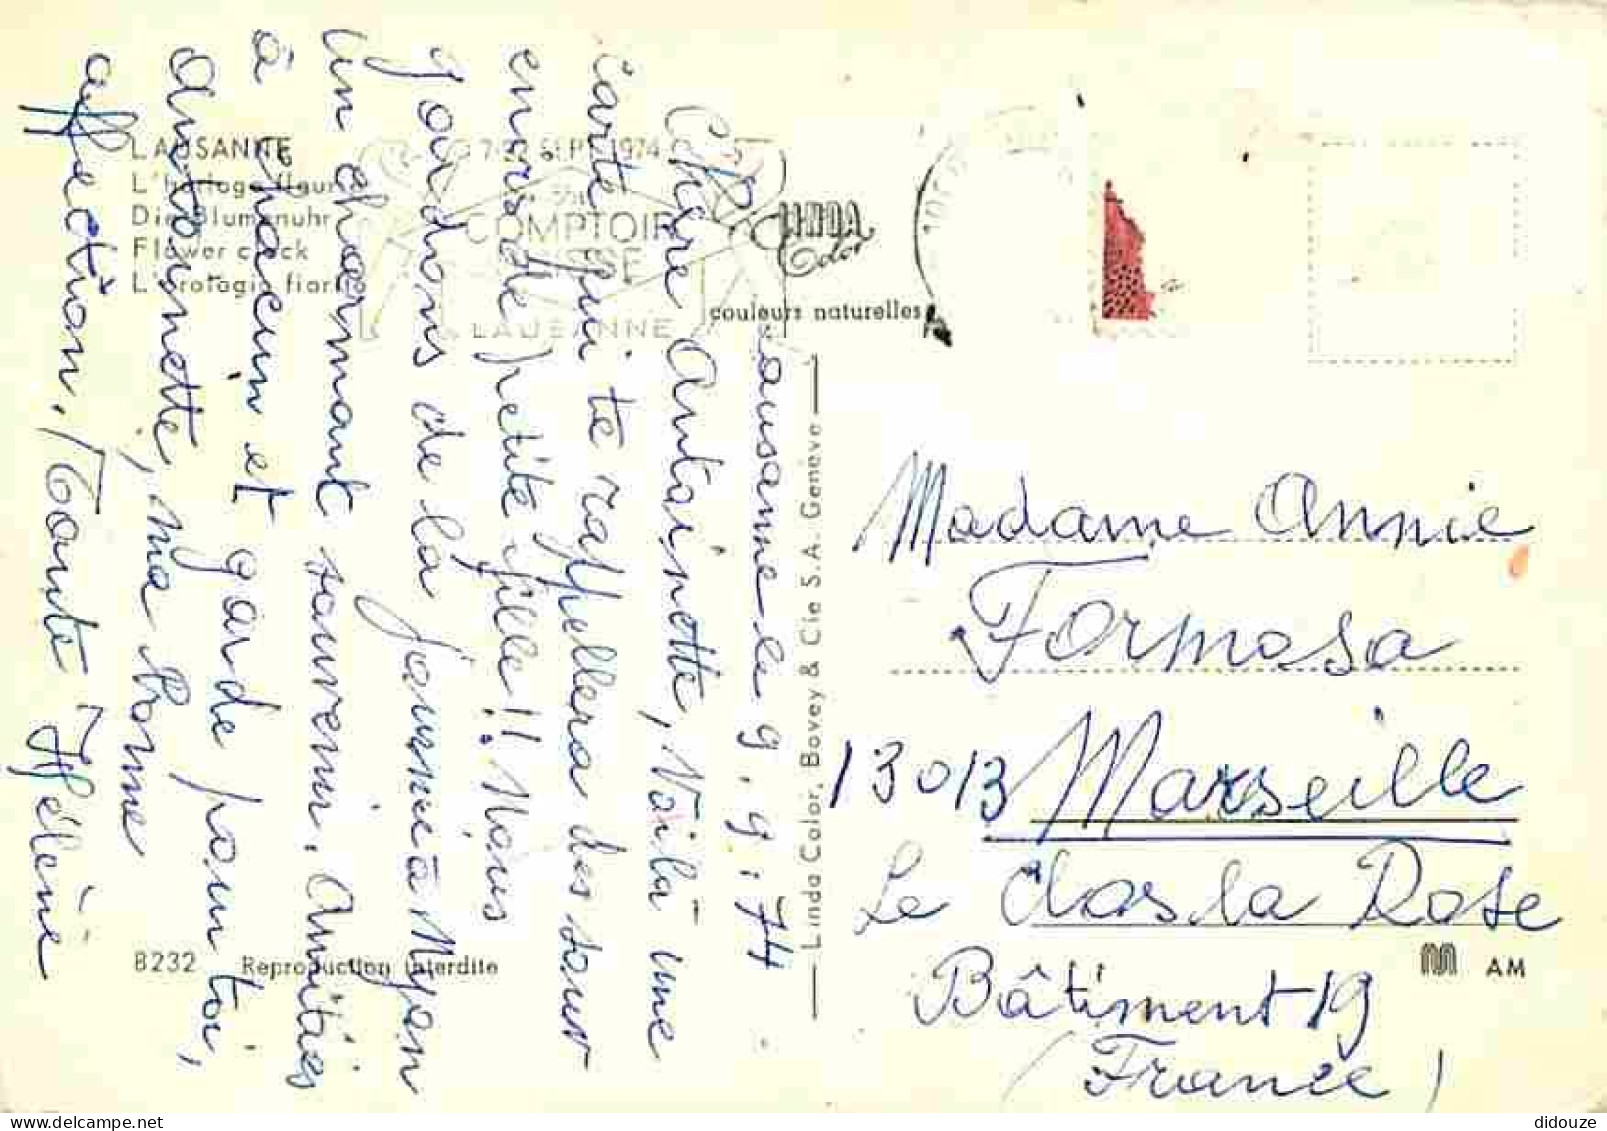 LAUSANNE
L'horloge fleurie
Die Blumenuhr
Flower clock
L'orologio fiorito
7-22 SEPT. 1974
55e
COMPTOIR
SUISSE
LAUSANNE
LINDA
Color
couleurs naturelles
Lausanne le 9.9.74
Chère Antoinette, Voilà une
carte qui te rappellera des jour
ensolde petite fille!! Nous
gardons de la journée à Nyon
un charmant souvenir. Amitiés
à chacun et garde pour toi,
Antoinette, ma bonne
affection. Tante Hélène
Linda Color, Bovey & Cie S.A. Genève
Madame Annie
Formosa
13013 Marseille
Le Clos la Rose
Bâtiment 19
(France)
8232 Reproduction interdite
AM
didouze